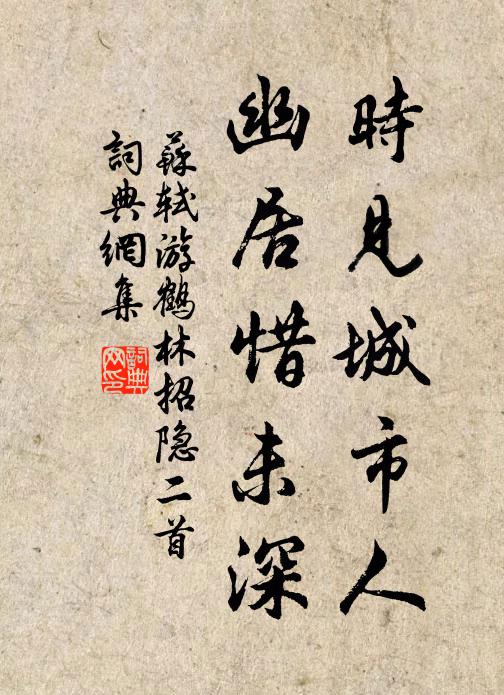 時見城市人
幽居惜未深
蘇軾游鶴林招隐二首
詞典網集
詞典網印